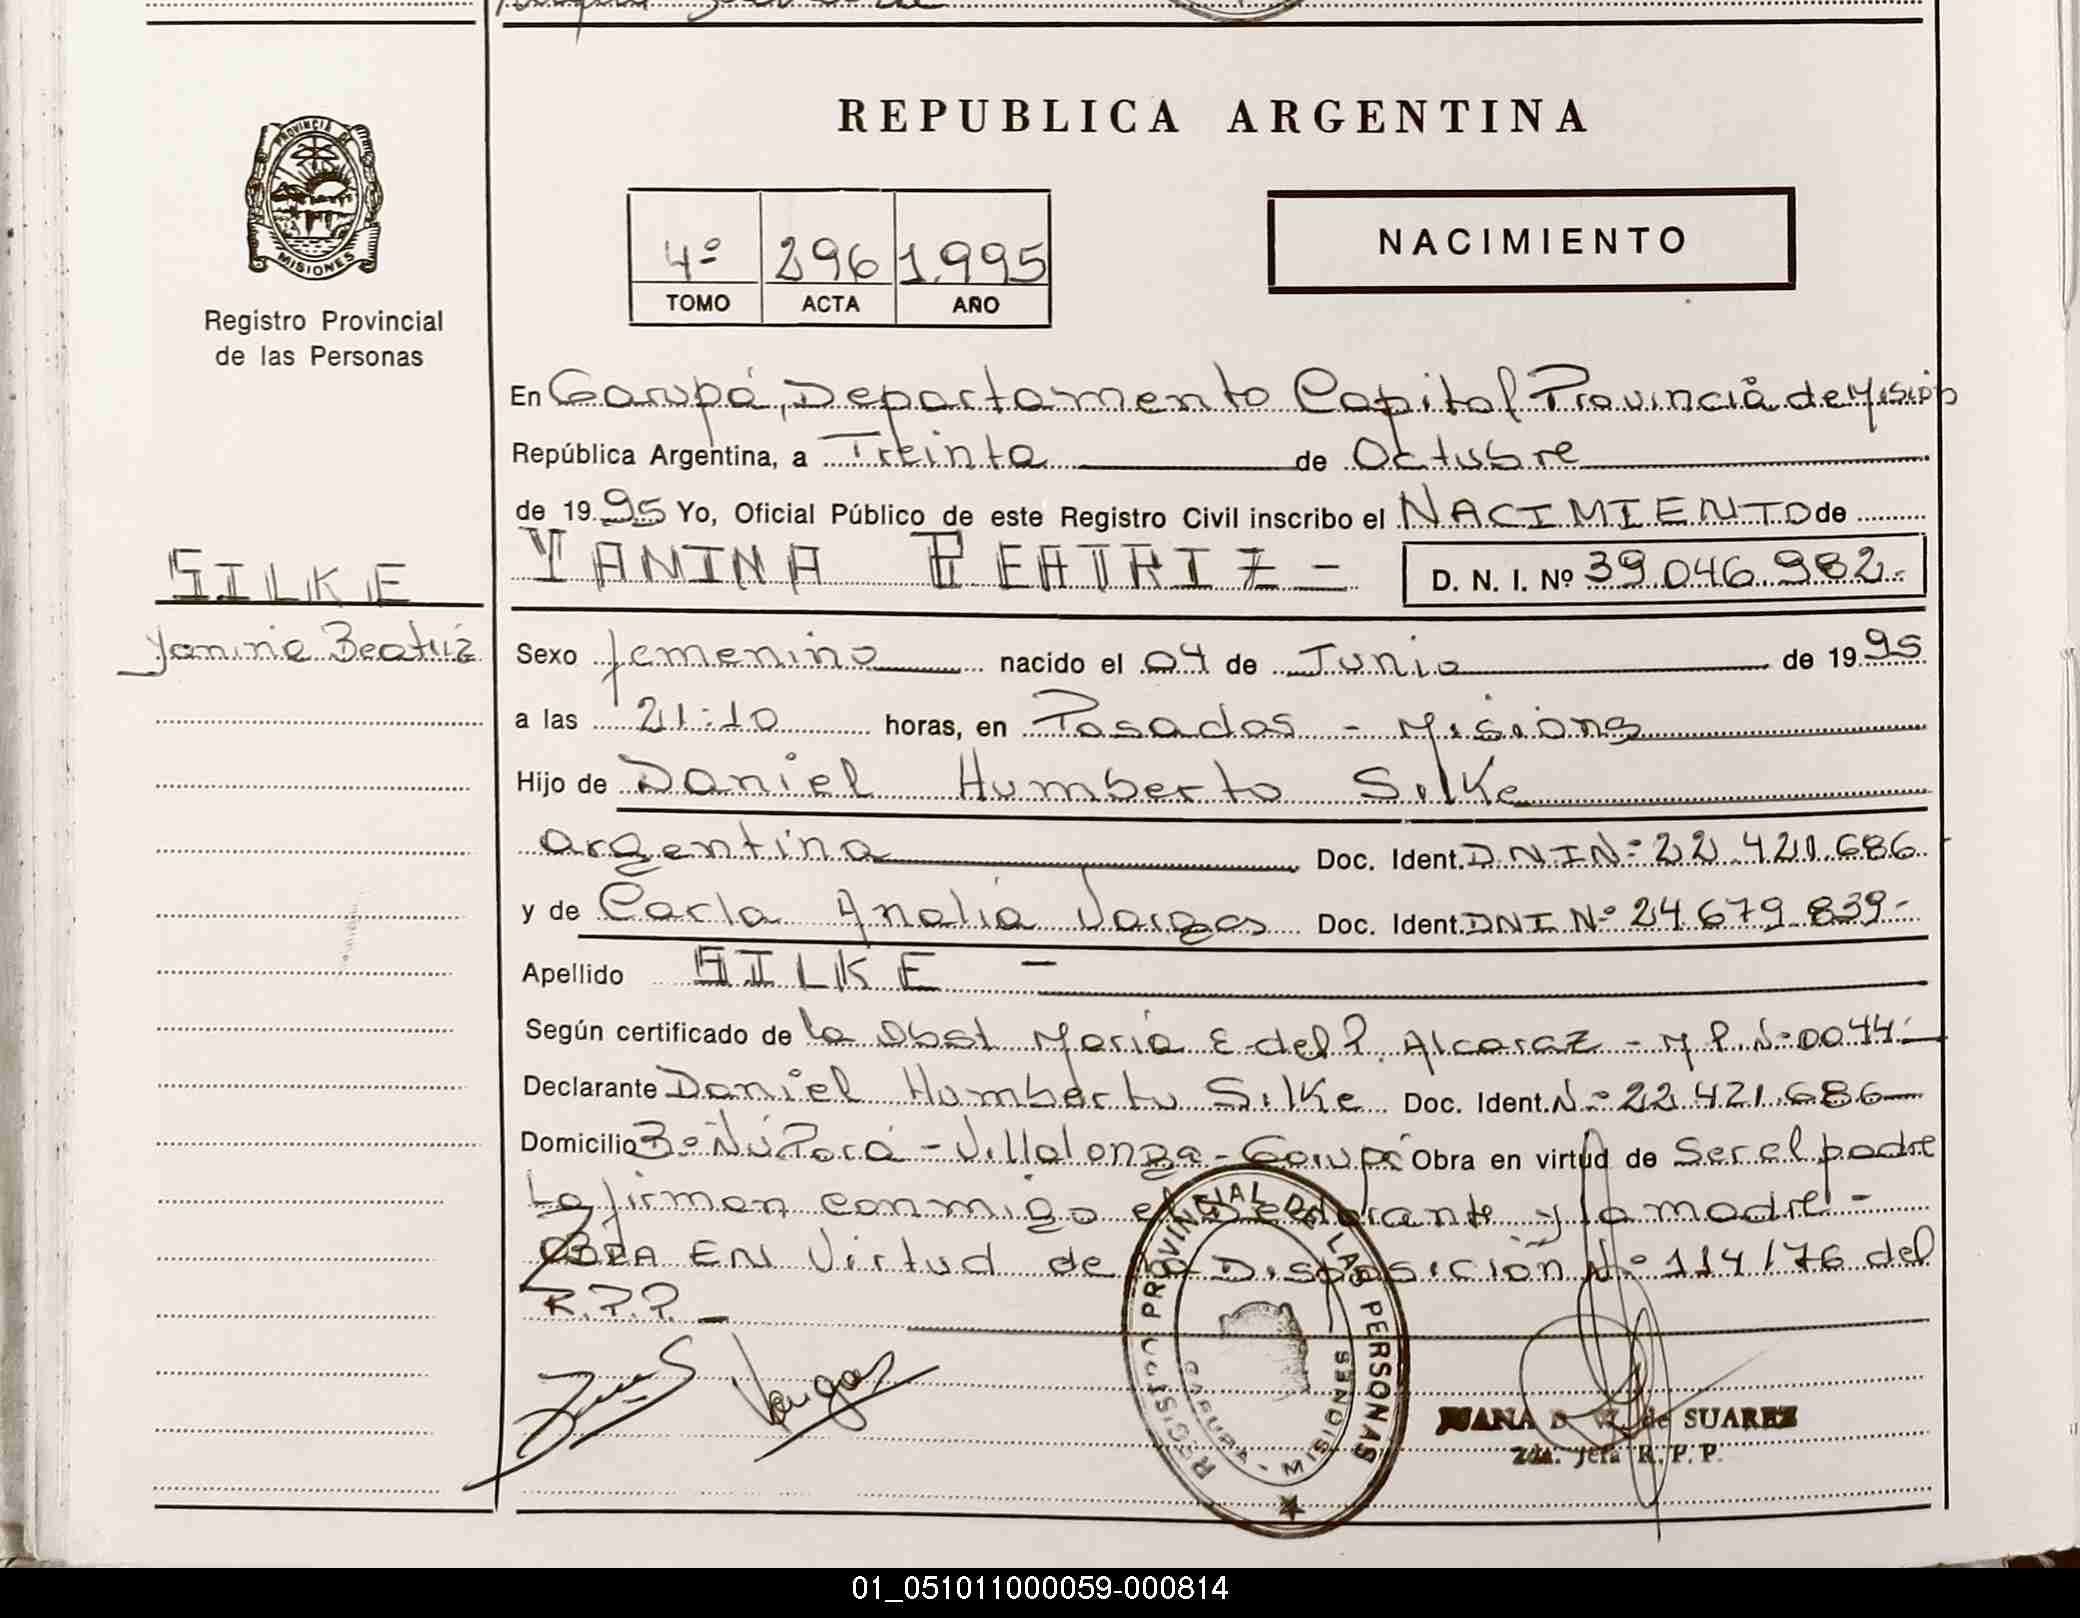 REPUBLICA ARGENTINA
PROVINCIA DE
MISIONES
Registro Provincial
de las Personas
4º 296 1.995
TOMO ACTA AÑO
NACIMIENTO
En Garupá, Departamento Capital Provincia de Misiones
República Argentina, a Treinta de Octubre
de 1995 Yo, Oficial Público de este Registro Civil inscribo el NACIMIENTO de
SILKE
YANINA BEATRIZ - D. N. I. Nº 39.046.982.-
Yanina Beatriz
Sexo femenino nacido el 04 de Junio de 1995
a las 21:10 horas, en Posadas - Misiones
Hijo de Daniel Humberto Silke
argentina Doc. Ident. DNI Nº 22.421.686
y de Carla Analia Vargas Doc. Ident. DNI Nº 24.679.839-
Apellido SILKE -
Según certificado de la Obst María E. del P. Alcaraz - M.P. Nº 0044-
Declarante Daniel Humberto Silke Doc. Ident. Nº 22.421.686
Domicilio Bº Ñú Porá - Villalonga - Garupá Obra en virtud de Ser el padre
La firman conmigo el Declarante y la madre -
OBRA EN Virtud de la Disposición Nº 114/76 del
R.P.P. -
Vargas
REGISTRO PROVINCIAL DE LAS PERSONAS
GARUPA - MISIONES
JUANA de SUAREZ
2da. Jefa R. P. P.
01_051011000059-000814